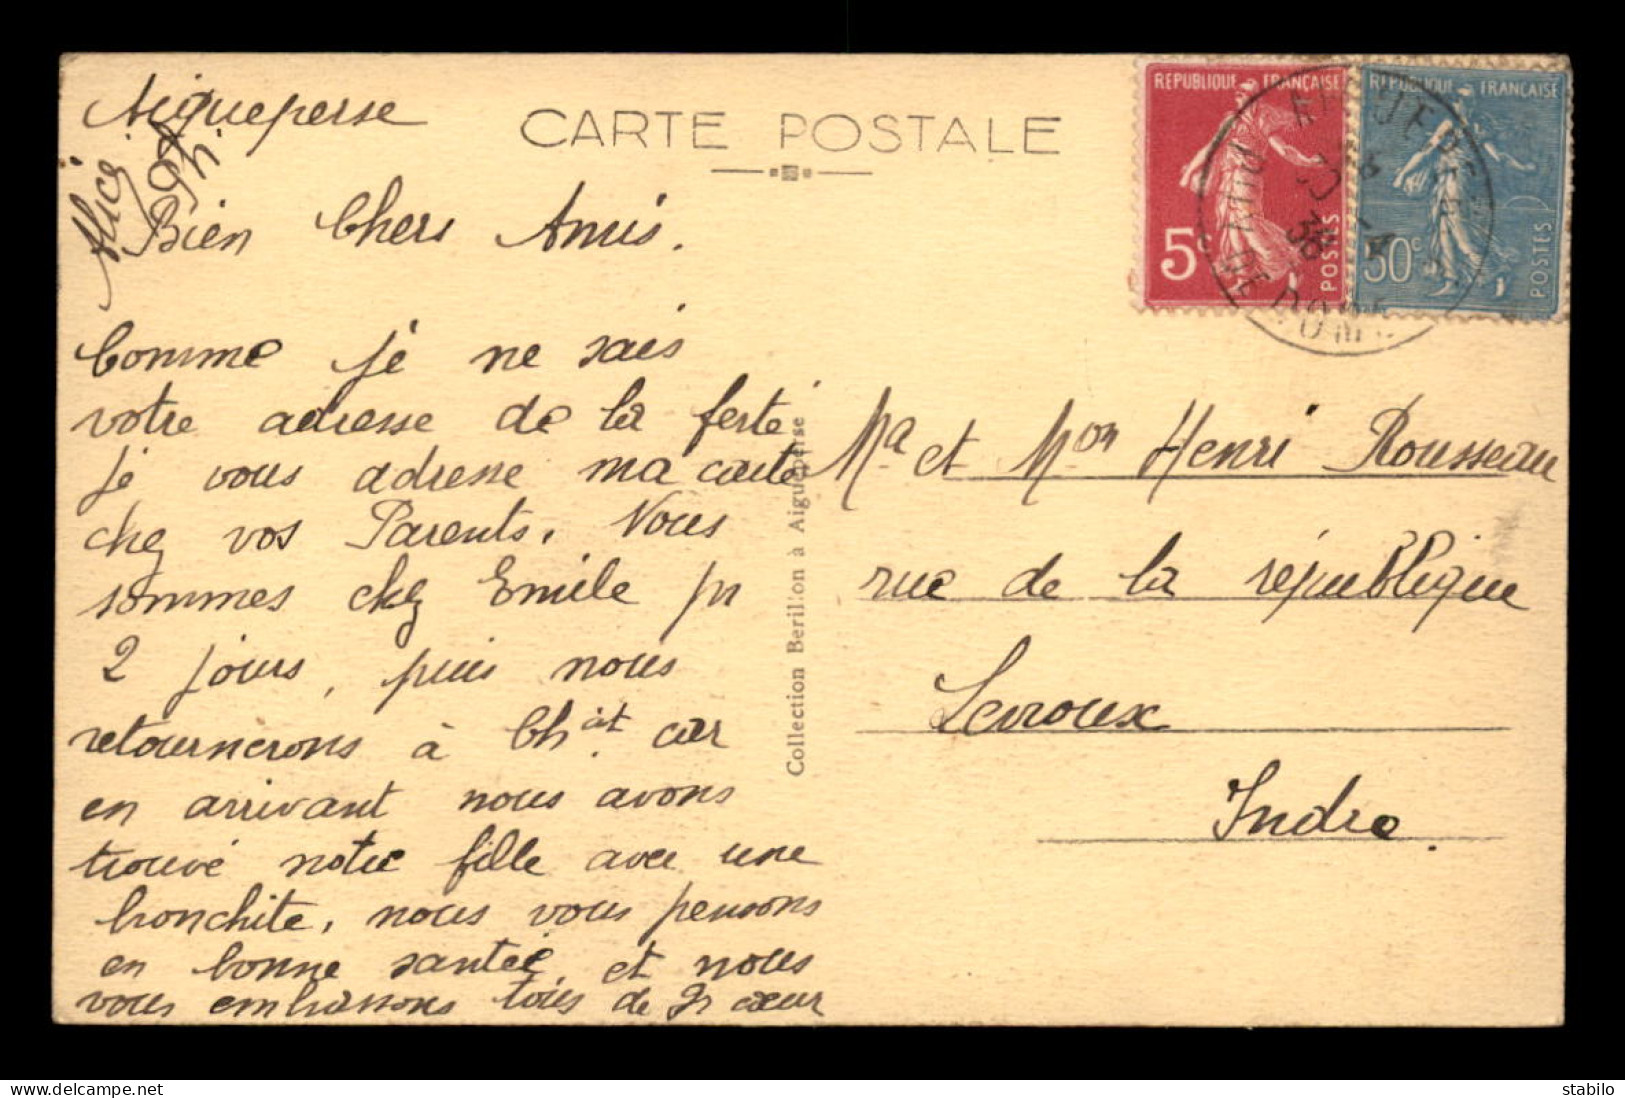 Aigueperse
CARTE POSTALE
Alice
Bien Chers Amis.
Comme je ne sais
votre adresse de la ferté
je vous adresse ma carte
chez vos Parents. Nous
sommes chez Emile pr
2 jours, puis nous
retournerons à Chât. car
en arrivant nous avons
trouvé notre fille avec une
bronchite, nous vous pensons
en bonne santée, et nous
vous embrassons tous de gr cœur
Collection Berillon à Aigueperse
REPUBLIQUE FRANÇAISE
5c
POSTES
REPUBLIQUE FRANÇAISE
50c
POSTES
PUY DE DOME
38
Ma et Mon Henri Rousseau
rue de la république
Levroux
Indre.
stabilo
(c) delcampe.net